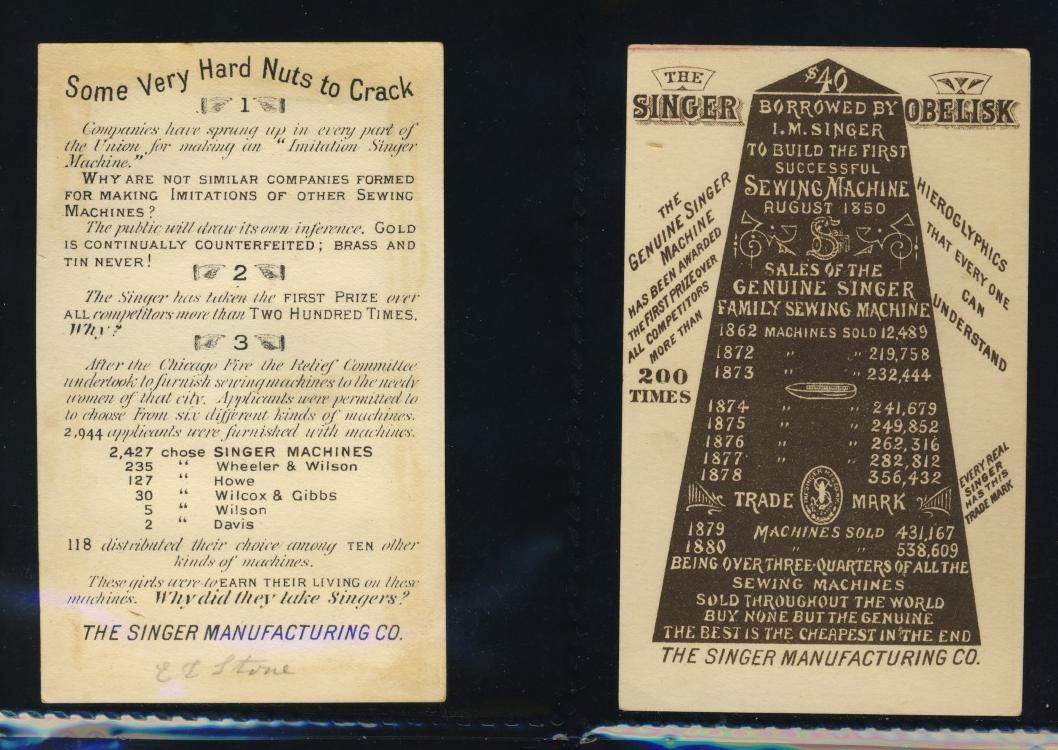 Some Very Hard Nuts to Crack
1
Companies have sprung up in every part of
the Union for making an "Imitation Singer
Machine."
WHY ARE NOT SIMILAR COMPANIES FORMED
FOR MAKING IMITATIONS OF OTHER SEWING
MACHINES?
The public will draw its own inference. GOLD
IS CONTINUALLY COUNTERFEITED; BRASS AND
TIN NEVER!
2
The Singer has taken the FIRST PRIZE over
ALL competitors more than TWO HUNDRED TIMES.
Why?
3
After the Chicago Fire the Relief Committee
undertook to furnish sewing machines to the needy
women of that city. Applicants were permitted to
to choose From six different kinds of machines.
2,944 applicants were furnished with machines.
2,427 chose SINGER MACHINES
235 " Wheeler & Wilson
127 " Howe
30 " Wilcox & Gibbs
5 " Wilson
2 " Davis
118 distributed their choice among TEN other
kinds of machines.
These girls were to EARN THEIR LIVING on these
machines. Why did they take Singers?
THE SINGER MANUFACTURING CO.
E L Stone
THE
SINGER
OBELISK
$40
BORROWED BY
I.M. SINGER
TO BUILD THE FIRST
SUCCESSFUL
SEWING MACHINE
AUGUST 1850
S
SALES OF THE
GENUINE SINGER
FAMILY SEWING MACHINE
1862 MACHINES SOLD 12,489
1872 " " 219,758
1873 " " 232,444
1874 " " 241,679
1875 " " 249,852
1876 " " 262,316
1877 " " 282,812
1878 " " 356,432
TRADE MARK
1879 MACHINES SOLD 431,167
1880 " " 538,609
BEING OVER THREE-QUARTERS OF ALL THE
SEWING MACHINES
SOLD THROUGHOUT THE WORLD
BUY NONE BUT THE GENUINE
THE BEST IS THE CHEAPEST IN THE END
THE SINGER MANUFACTURING CO.
THE
GENUINE SINGER
MACHINE
HAS BEEN AWARDED
THE FIRST PRIZE OVER
ALL COMPETITORS
MORE THAN
200
TIMES
HIEROGLYPHICS
THAT EVERY ONE
CAN
UNDERSTAND
EVERY REAL
SINGER
HAS THIS
TRADE MARK